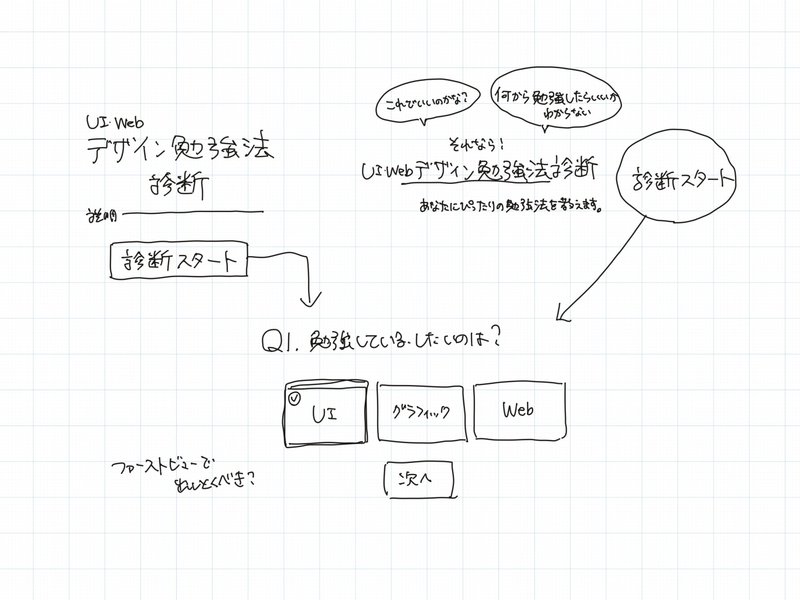 UI・Web
デザイン勉強法
診断
説明
診断スタート
これでいいのかな？
何から勉強したらいいか
わからない
それなら！
UI・Webデザイン勉強法診断
あなたにぴったりの勉強法を教えます。
診断スタート
Q1. 勉強している・したいのは？
UI
グラフィック
Web
次へ
ファーストビューで
いっとくべき？